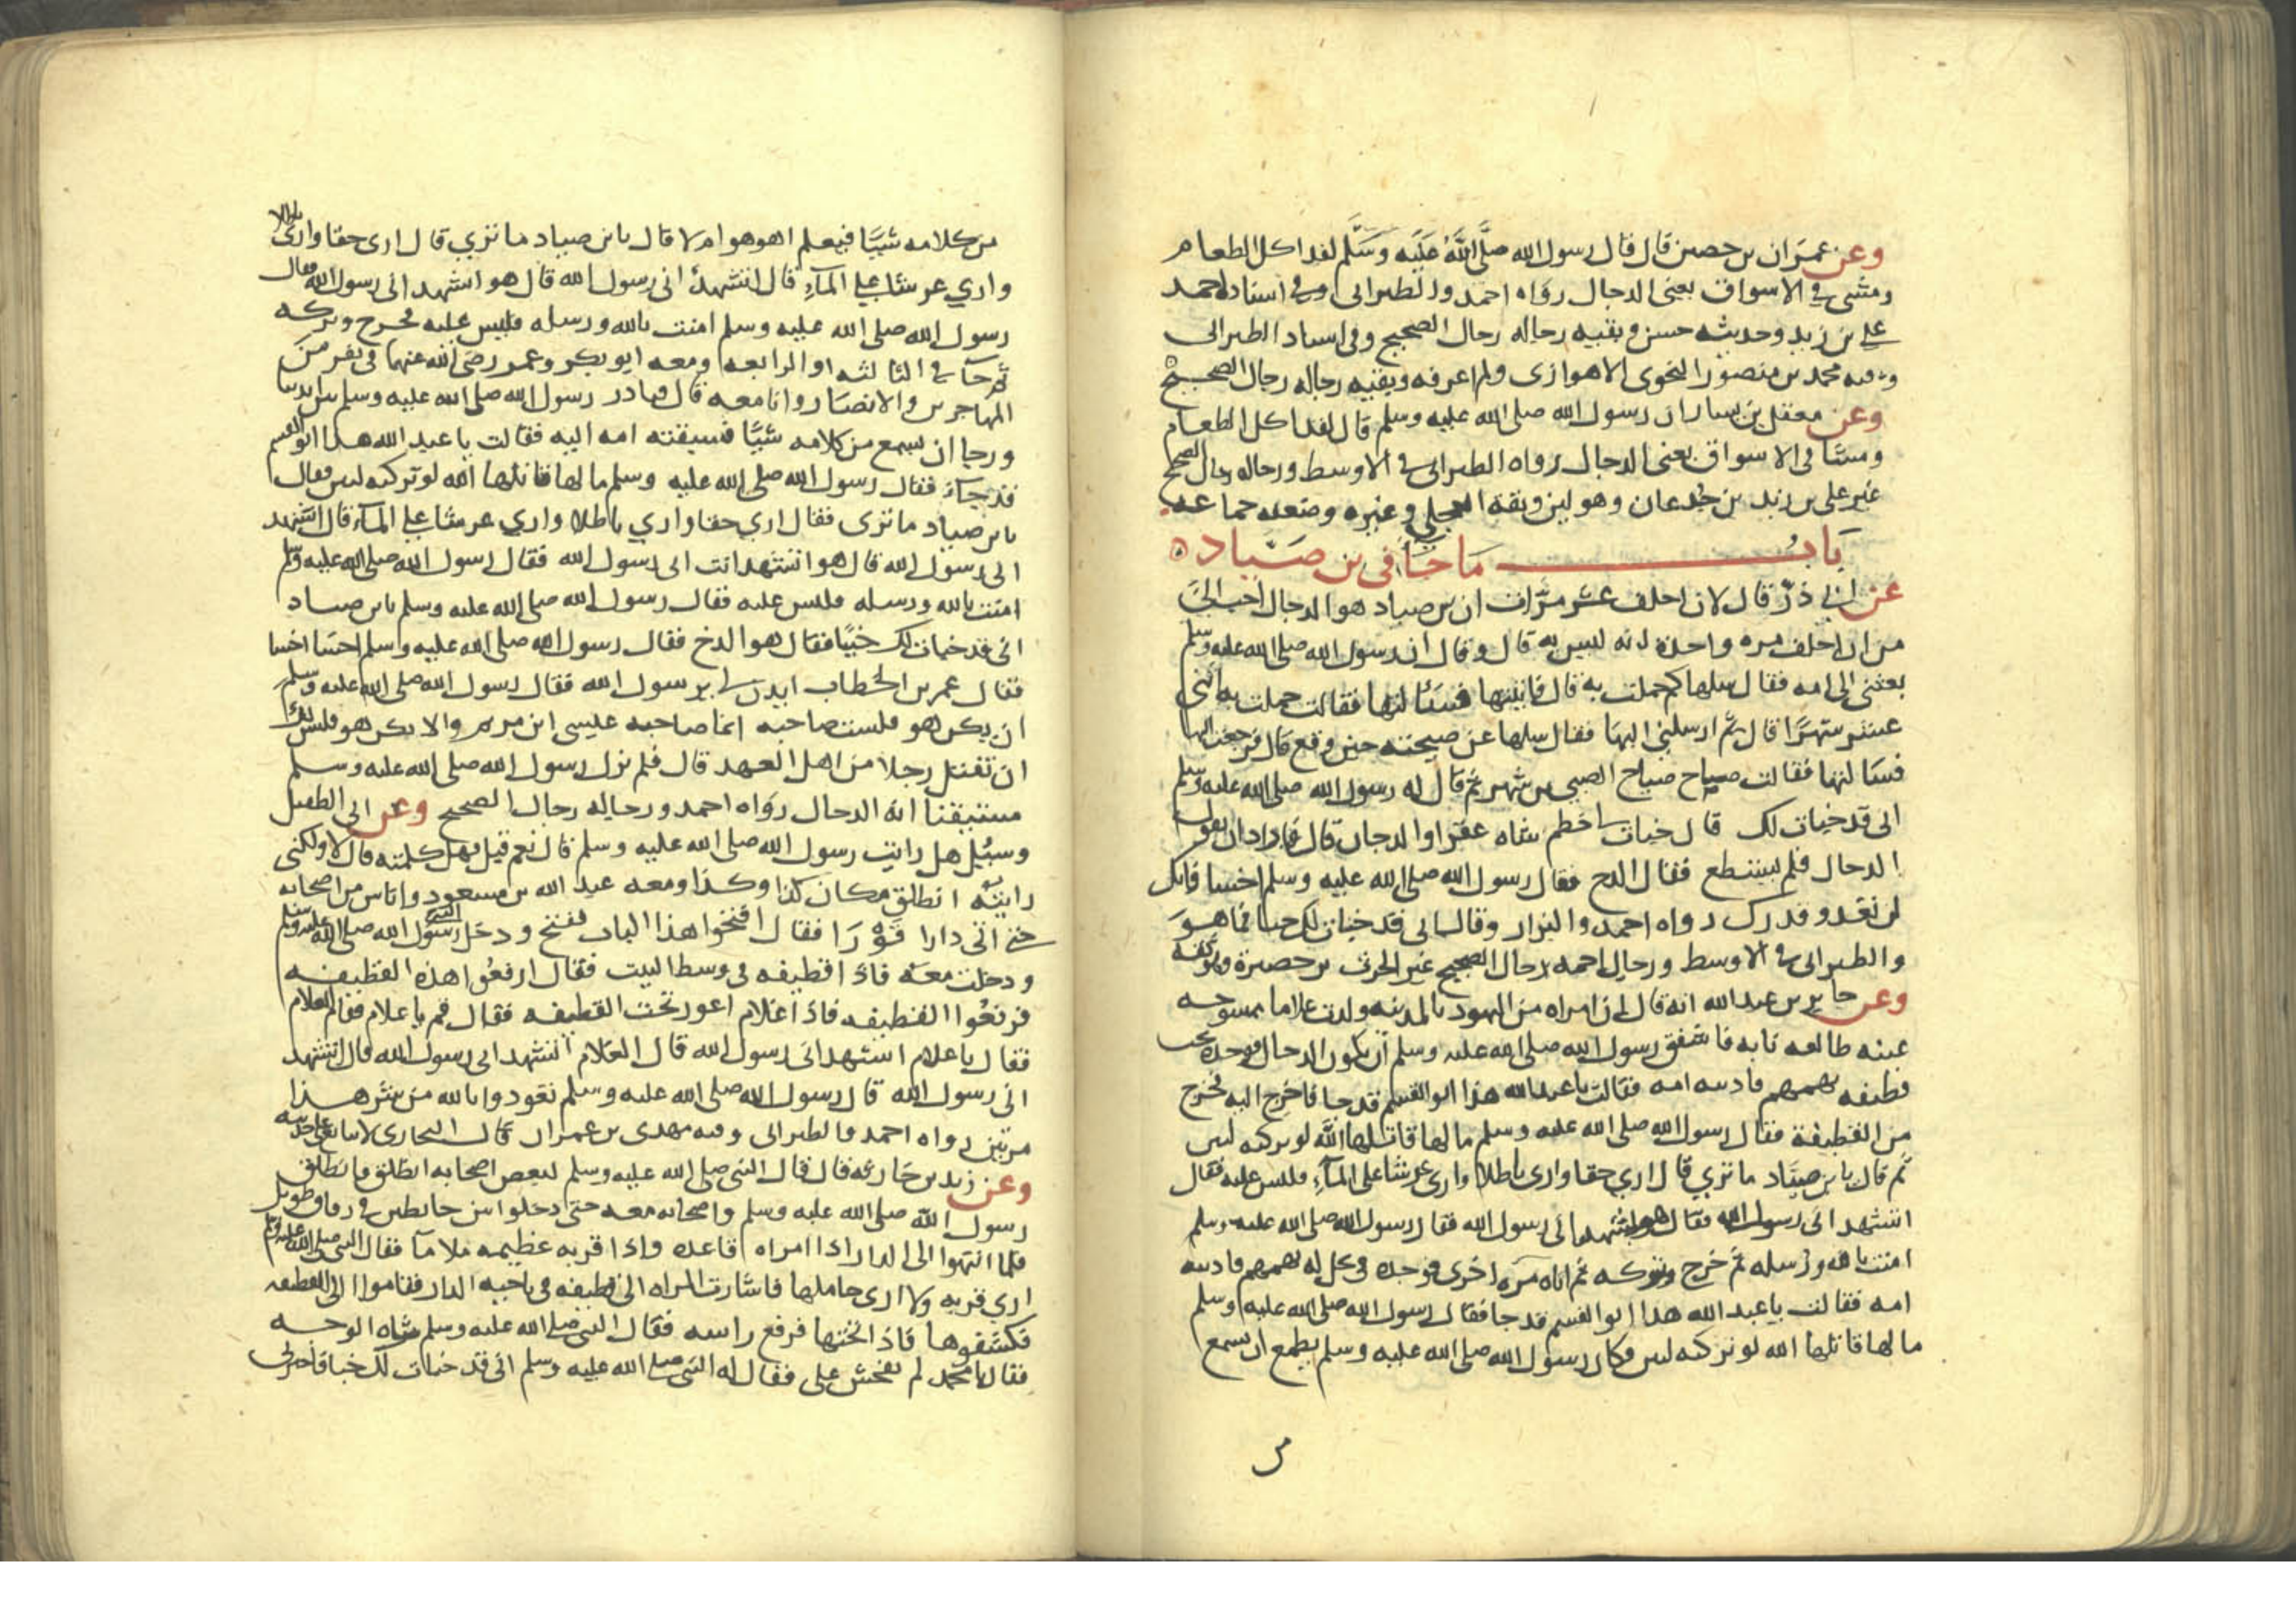 وعن عمران بن حصين قال قال رسول الله صلى الله عليه وسلم لقد اكل الطعام
ومشى في الاسواق يعني الدجال رواه احمد والطبراني وفي اسناد احمد
علي بن زيد وحديثه حسن وبقيه رجاله رجال الصحيح وفي اسناد الطبراني
محمد بن منصور النحوى الاهوازى ولم اعرفه وبقيه رجاله رجال الصحيح
وعن معقل بن يسار ان رسول الله صلى الله عليه وسلم قال لقد اكل الطعام
ومشا في الاسواق يعني الدجال رواه الطبراني في الاوسط ورجاله رجال الصحيح
غير علي بن زيد بن جدعان وهو لين وثقه العجلي وغيره وضعفه جماعه
باب ما جا في بن صياد
عن ابي ذر قال لان احلف عشر مرات ان بن صياد هو الدجال احب الي
من ان احلف مره واحدة انه ليس به قال وقال ان رسول الله صلى الله عليه وسلم
بعثني الى امه فقال سلها كم حملت به قال فاتيتها فسالتها فقالت حملت به اثنى
عشر شهرا قال ثم ارسلني اليها فقال سلها عن صيحته حين وقع قال فرجعت اليها
فسالتها فقالت صاح صياح الصبي بن شهر ثم قال له رسول الله صلى الله عليه وسلم
انى قد خبات لك قال خبات لي خطم شاه عفرا والدخان قال فاراد ان يقول
الدخان فلم يستطع فقال الدخ فقال رسول الله صلى الله عليه وسلم اخسا فانك
لن تعدو قدرك رواه احمد والبزار وقال انى قد خبات لك خبا فما هو
والطبراني في الاوسط ورجال احمد رجال الصحيح غير الحرث بن حصيرة وهو ثقه
وعن جابر بن عبد الله انه قال ان امراه من اليهود بالمدينه ولدت غلاما ممسوحه
عينه طالعه نابه فاشفق رسول الله صلى الله عليه وسلم ان يكون الدجال فوجده تحت
قطيفه يهمهم فاذنته امه فقالت يا عبد الله هذا ابو القسم قد جا فاخرج اليه فخرج
من القطيفة فقال رسول الله صلى الله عليه وسلم ما لها قاتلها الله لو تركته لبين
ثم قال يا بن صياد ما تري قال اري حقا وارى باطلا وارى عرشا على المآء فلبس عليه فقال
اتشهد انى رسول الله فقال هو اتشهد انى رسول الله فقال رسول الله صلى الله عليه وسلم
امنت بالله ورسله ثم خرج وتركه ثم اتاه مره اخرى فوجده في نخل له يهمهم فاذنته
امه فقالت يا عبد الله هذا ابو القسم قد جا فقال رسول الله صلى الله عليه وسلم
ما لها قاتلها الله لو تركته لبين وكان رسول الله صلى الله عليه وسلم يطمع ان يسمع
من كلامه شيا فيعلم اهو هو ام لا قال يا بن صياد ما تري قال ارى حقا وارى باطلا
واري عرشا علي المآء قال اتشهد انى رسول الله قال هو اتشهد انى رسول الله فقال
رسول الله صلى الله عليه وسلم امنت بالله ورسله فلبس عليه فخرج وتركه
ثم جآ في الثالثه او الرابعه ومعه ابو بكر وعمر رضى الله عنهما في نفر من
المهاجرين والانصار وانا معه قال فبادر رسول الله صلى الله عليه وسلم بين ايدينا
ورجا ان يسمع من كلامه شيا فسبقته امه اليه فقالت يا عبد الله هذا ابو القسم
قد جآء فقال رسول الله صلى الله عليه وسلم ما لها قاتلها الله لو تركته لبين فقال
يا بن صياد ما ترى فقال اري حقا واري باطلا واري عرشا علي المآء قال اتشهد
انى رسول الله قال هو اتشهد انت انى رسول الله فقال رسول الله صلى الله عليه وسلم
امنت بالله ورسله فلبس عليه فقال رسول الله صلى الله عليه وسلم يا بن صياد
انى قد خبات لك خبيا فقال هو الدخ فقال رسول الله صلى الله عليه وسلم اخسا اخسا
فقال عمر بن الخطاب ايذن لي يرسول الله فقال رسول الله صلى الله عليه وسلم
ان يكن هو فلست صاحبه انما صاحبه عيسى ابن مريم والا يكن هو فليس لك
ان تقتل رجلا من اهل العهد قال فلم يزل رسول الله صلى الله عليه وسلم
مستيقنا انه الدجال رواه احمد ورجاله رجال الصحيح وعن ابي الطفيل
وسيل هل رايت رسول الله صلى الله عليه وسلم قال نعم قيل فهل كلمته قال لا ولكنى
رايته انطلق مكان كذا وكذا ومعه عبد الله بن مسعود واناس من اصحابه
حتى اتى دارا قورا فقال افتحوا هذا الباب ففتح ودخل رسول الله صلى الله عليه وسلم
ودخلت معه فاذا قطيفه في وسط البيت فقال ارفعوا هذه القطيفه
فرفعوا القطيفه فاذا غلام اعور تحت القطيفه فقال قم يا غلام فقام الغلام
فقال يا غلام اتشهد انى رسول الله قال الغلام اتشهد انى رسول الله قال اتشهد
انى رسول الله قال رسول الله صلى الله عليه وسلم تعوذوا بالله من شر هذا
مرتين رواه احمد والطبراني وفيه مهدى بن عمران قال البخارى لا يتابع على حديثه
وعن زيد بن حارثه قال قال النبي صلى الله عليه وسلم لبعض اصحابه انطلق فانطلق
رسول الله صلى الله عليه وسلم واصحابه معه حتى دخلوا بين حايطين في زقاق طويل
فلما انتهوا الى الدار اذا امراه قاعده واذا قربه عظيمه ملا مآ فقال النبي صلى الله عليه وسلم
اري قربه ولا ارى حاملها فاشارت المراه الى قطيفه في ناحيه الدار فقاموا الى القطيفه
فكشفوها فاذا تحتها فرفع راسه فقال النبي صلى الله عليه وسلم شاه الوجه
فقال يا محمد لم تفحش على فقال له النبي صلى الله عليه وسلم انى قد خبات لك خبا فاخبرنى